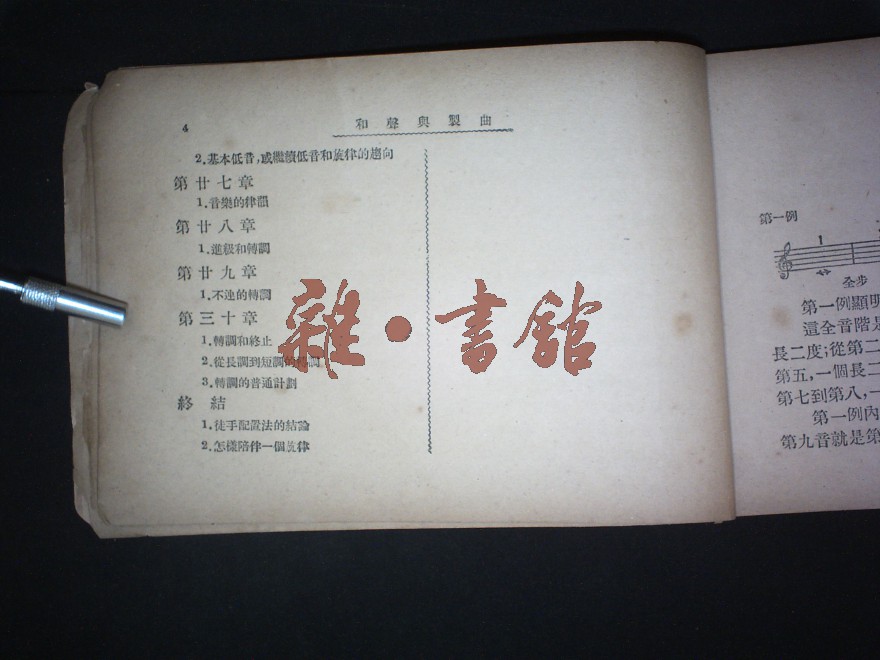 4
和聲與製曲
2.基本低音,或繼續低音和旋律的趨向
第廿七章
1.音樂的律韻
第廿八章
1.進級和轉調
第廿九章
1.不達的轉調
第三十章
1.轉調和終止
2.從長調到短調的轉調
3.轉調的普通計劃
終結
1.徒手配置法的結論
2.怎樣陪伴一個旋律
雜·書館
第一例
1
全步
第一例顯明
這全音階是
長二度;從第二
第五,一個長二
第七到第八,一
第一例內
第九音就是第